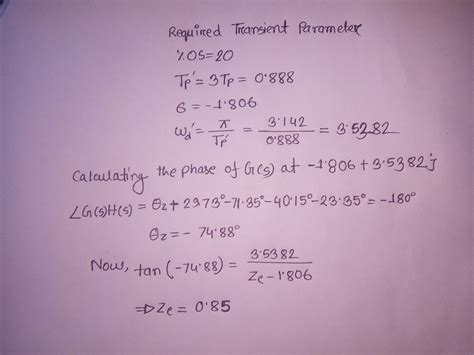 Required Transient Parameter
%OS=20
Tp' = 3Tp = 0.888
σ = -1.806
ωd' = π/Tp' = 3.142/0.888 = 3.5382
Calculating the phase of G(s) at -1.806 + 3.5382j
∠G(s)H(s) = θz + 27.3° - 71.35° - 40.15° - 23.35° = -180°
θz = - 74.88°
Now, tan(-74.88) = 3.5382/Zc-1.806
⇒ Zc = 0.85